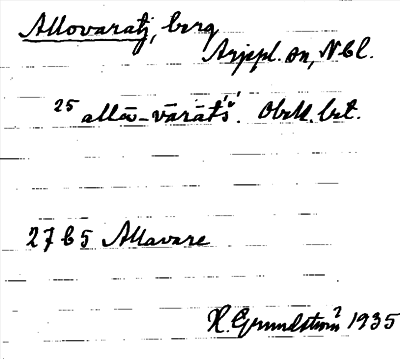 Allovaratj, berg
Arjepl. sn, Nbl.
25 allō-vārāt's̀. Obekl. bet.
27 C5 Allavare
H. Grundström 1935